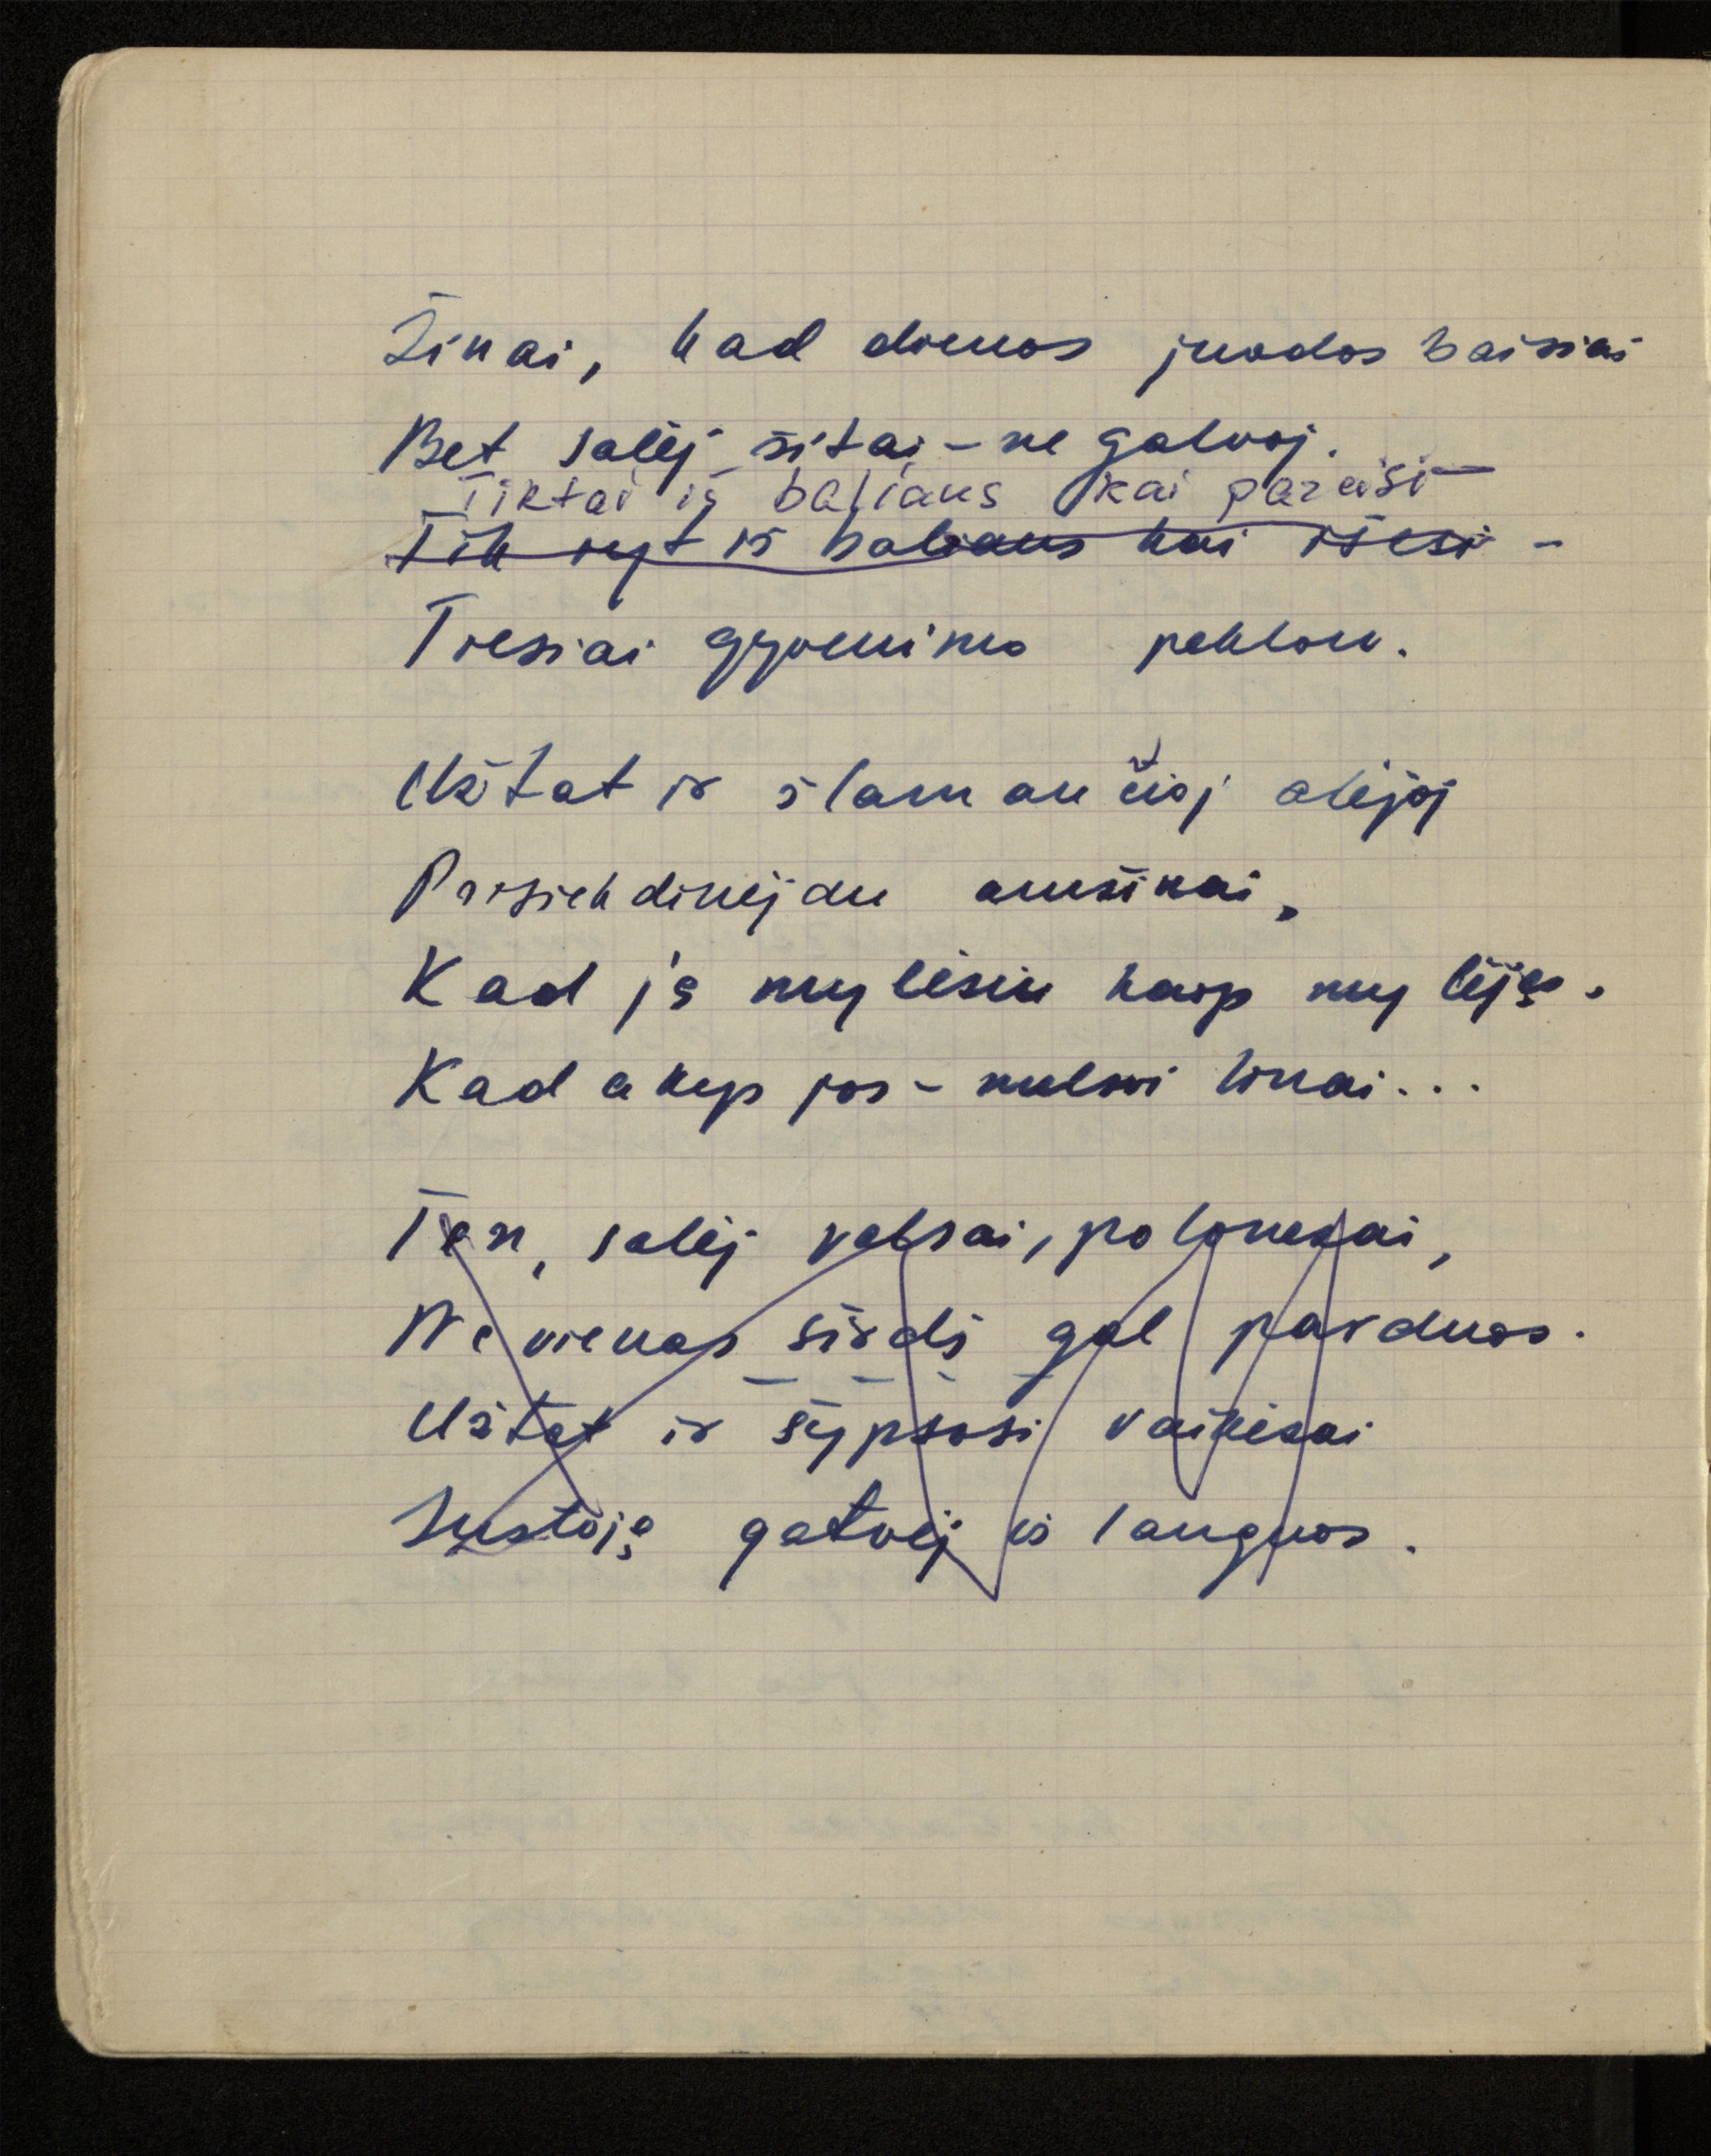 Žinai, kad dienos juodos baisiai
Bet salėj šitai – ne galvoj.
Tiktai iš baliaus kai pareisi –
Tik ryt iš baliaus kai išesi –
Tiesiai gyvenimo peklon.
Užtat ir šlamančioj alėjoj
Prisiekdinėjau amžinai,
Kad ją mylėsiu kaip mylėjęs.
Kad akys jos – melsvi linai...
Ten, salėj valsai, polonezai,
Ne vienas širdį gal parduos.
Užtat ir šypsosi vaikėzai
Sustoję gatvėj iš languos.